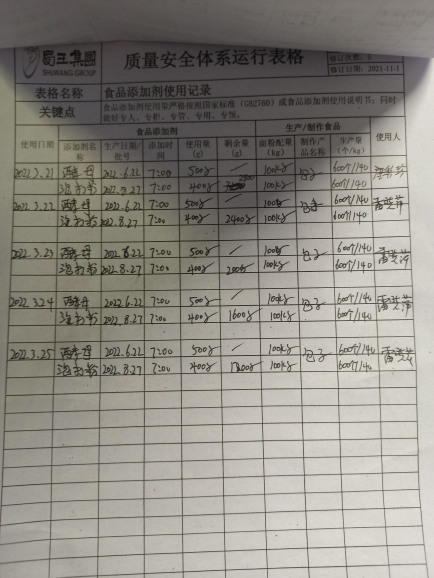 蜀王集團
SHUWANG GROUP
质量安全体系运行表格
修订日期:2021-11-1
表格名称 食品添加剂使用记录
关键点 食品添加剂使用要严格按照国家标准(GB2760)或食品添加剂使用说明书;同时
做好专人、专柜、专管、专用、专锁。
使用日期 食品添加剂 生产/制作食品 使用人
添加剂名称 生产日期/批号 添加时间 使用量(g) 剩余量(g) 面粉配量(kg) 制作产品名称 生产量(个/kg)
2022.3.21 酵母 2022.6.22 7:00 500g / 100kg 包子 600个/140
泡打粉 2022.8.27 7:00 400g 100kg 600个/140
2022.3.22 酵母 2022.6.22 7:00 500g / 100kg 包子 600个/140
泡打粉 2022.8.27 7:00 400g 2400g 100kg 600个/140
2022.3.23 酵母 2022.6.22 7:00 500g / 100kg 包子 600个/140
泡打粉 2022.8.27 7:00 400g 2000g 100kg 600个/140
2022.3.24 酵母 2022.6.22 7:00 500g / 100kg 包子 600个/140
泡打粉 2022.8.27 7:00 400g 1600g 100kg 600个/140
2022.3.25 酵母 2022.6.22 7:00 500g / 100kg 包子 600个/140
泡打粉 2022.8.27 7:00 400g 100kg 600个/140